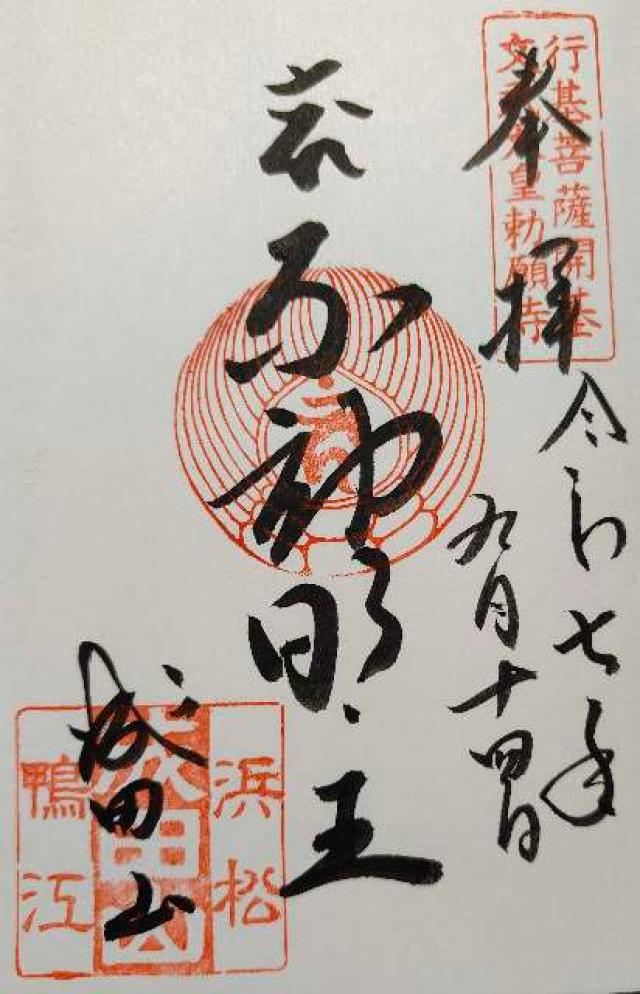 行基菩薩開基
文武天皇勅願寺
奉拝
令和七年
九月十四日
明王
浜松
成田山
鴨江
成田山